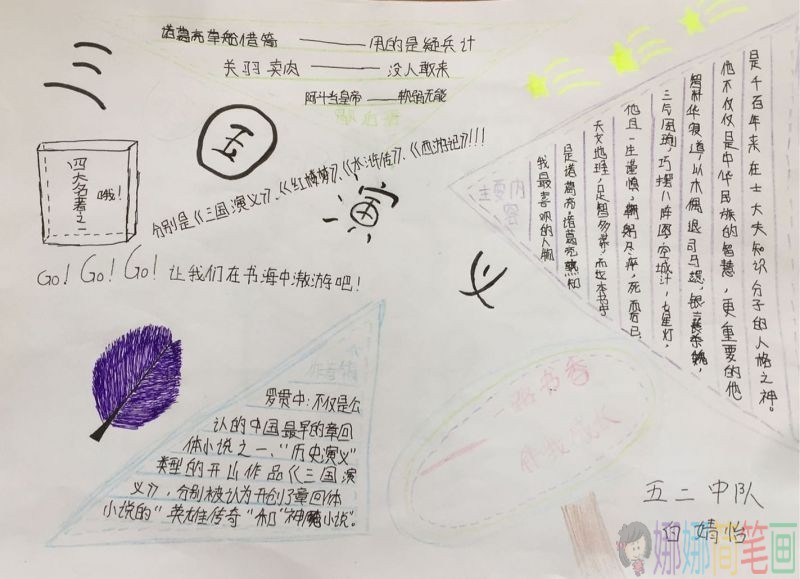 三
诸葛亮草船借箭——用的是疑兵计
关羽卖肉——没人敢来
阿斗当皇帝——软弱无能
歇后语
国
四大名著之一
哦!
分别是《三国演义》、《红楼梦》、《水浒传》、《西游记》!!!
演
义
Go! Go! Go! 让我们在书海中激游吧!
主要内容
我最喜欢的人物
是诸葛亮,诸葛亮熟知
天文地理,足智多谋,而
他且一生谨慎,鞠躬尽瘁,死而后已,
三气周瑜,巧摆八阵图,空城计,七星灯,
他不仅仅是中华民族的智慧,更重要的他
是千百年来在士大夫知识分子的人格之神。
罗贯中:不仅是公
认的中国最早的章回
体小说之一、"历史演义"
类型的开山作品《三国演
义》,分别被认为开创了章回体
小说的"英雄传奇"和"神魔小说"。
一路书香
伴我成长
五二中队
白婧怡
娜娜简笔画